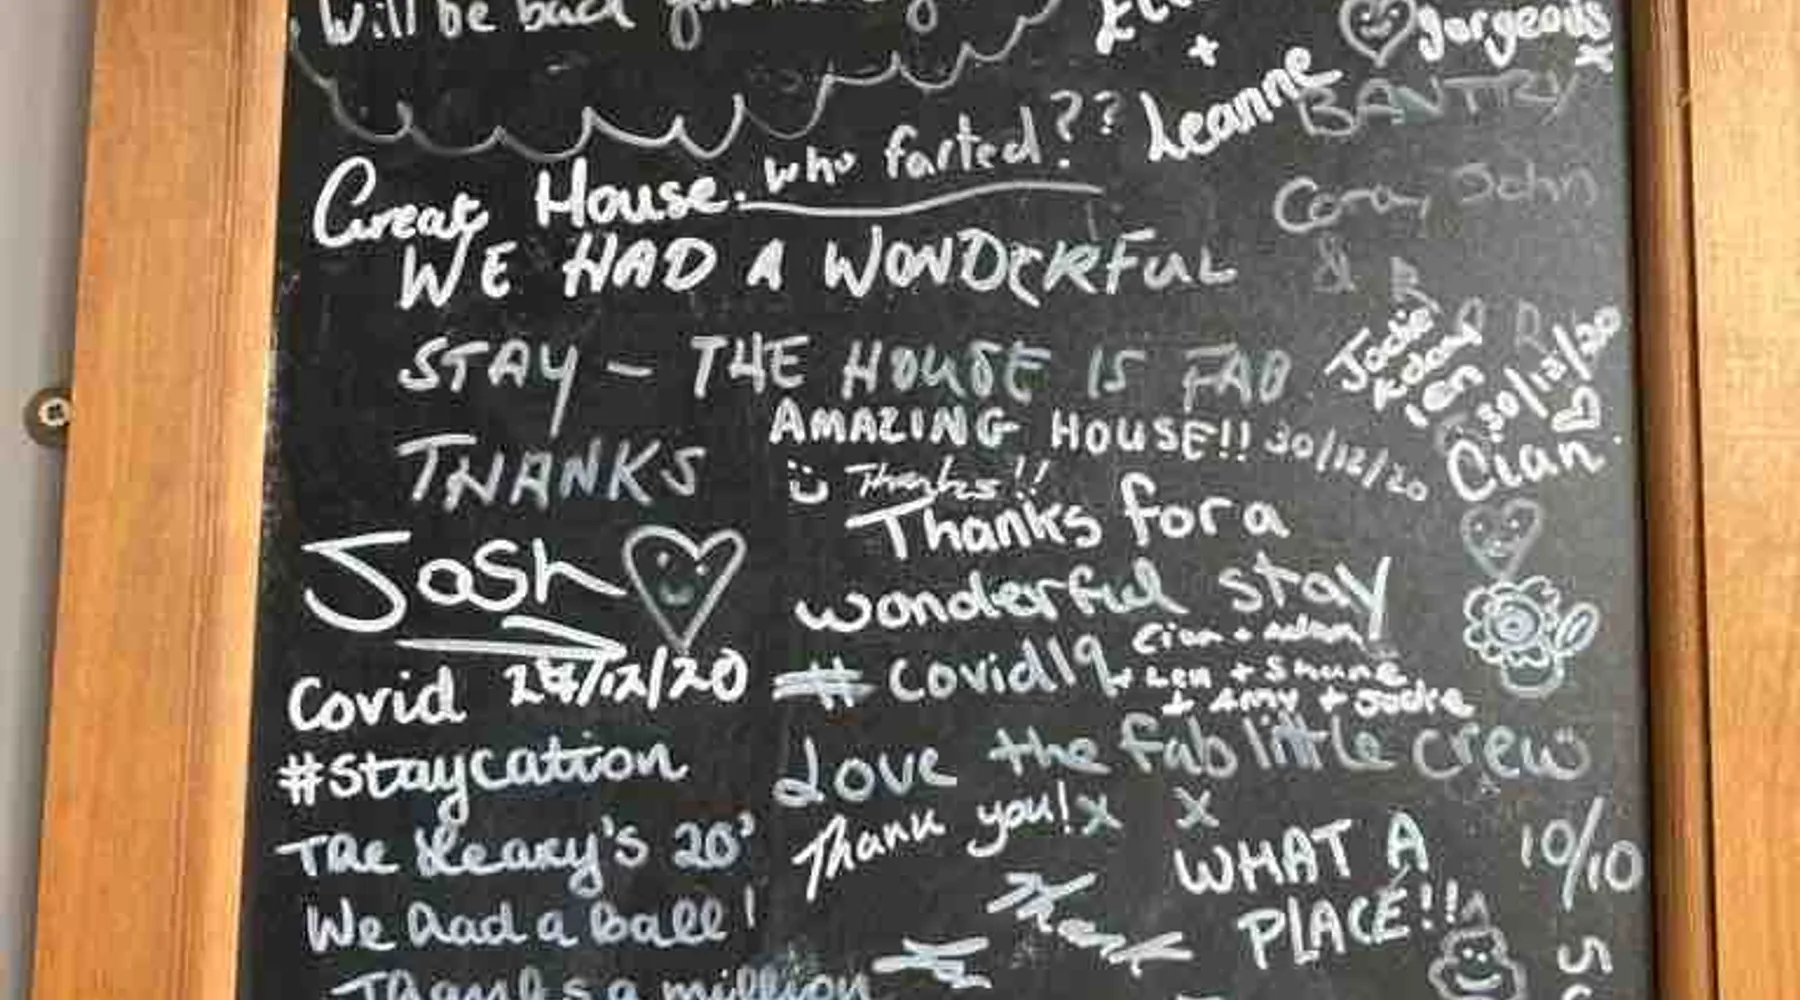 will be back
gorgeous
x
+
Leanne
BANTRY
who farted??
Great House.
Cora, John
&
WE HAD A WONDERFUL
STAY – THE HOUSE IS FAB
THANKS
Jodie
30/12/20
AMAZING HOUSE!! 30/12/20
Cian
Thanks!!
Thanks for a
wonderful stay
# covid19
Cian + Adam
+ Len + Shane
+ Amy + Jodie
Love the fab little crew
Thank you! x x
Josh
Covid 27/12/20
#staycation
The Leary's 20'
We had a ball!
Thanks a million
WHAT A
PLACE!!
10/10